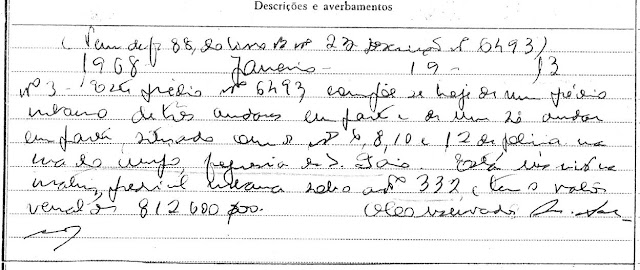 Descrições e averbamentos
(Vem de fs 88, do livro B nº 22 descrição nº 6493)
1968 Janeiro - 19 - 13
nº 3 - Este prédio nº 6493 compõe se hoje de um prédio
urbano de três andares em parte e de um só andar
em parte, situado com o nº 6, 8, 10 e 12 de polícia na
rua do, freguesia de S. Está inscrito na
matriz predial urbana sob o artº 332 e tem o valor
venal de 812600$00. O Conservador